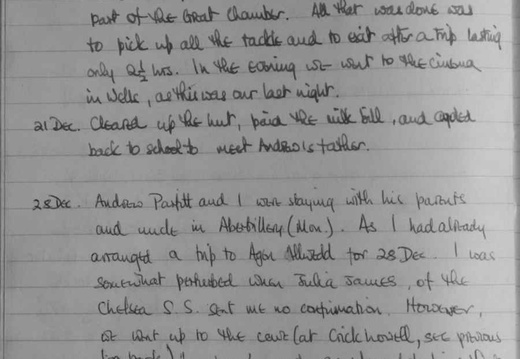 part of the Great Chamber. All that was done was
to pick up all the tackle and to exit after a trip lasting
only 2½ hrs. In the evening we went to the cinema
in Wells, as this was our last night.
21 Dec. Cleared up the hut, paid the milk bill, and cycled
back to school to meet Andrew's father.
28 Dec. Andrew Parfitt and I were staying with his parents
and uncle in Abertillery (Mon). As I had already
arranged a trip to Agen Allwedd for 28 Dec. I was
somewhat perturbed when Julia James, of the
Chelsea S.S. sent me no confirmation. However,
we went up to the cave (at Crickhowell, see previous